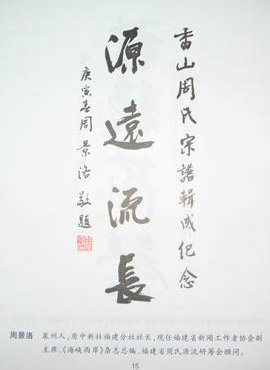 香山周氏宗譜輯成紀念
源遠流長
庚寅春周景洛敬題
周景洛 泉州人,原中新社福建分社社长,现任福建省新闻工作者协会副
主席、《海峡西岸》杂志总编、福建省周氏源流研筹会顾问。
15